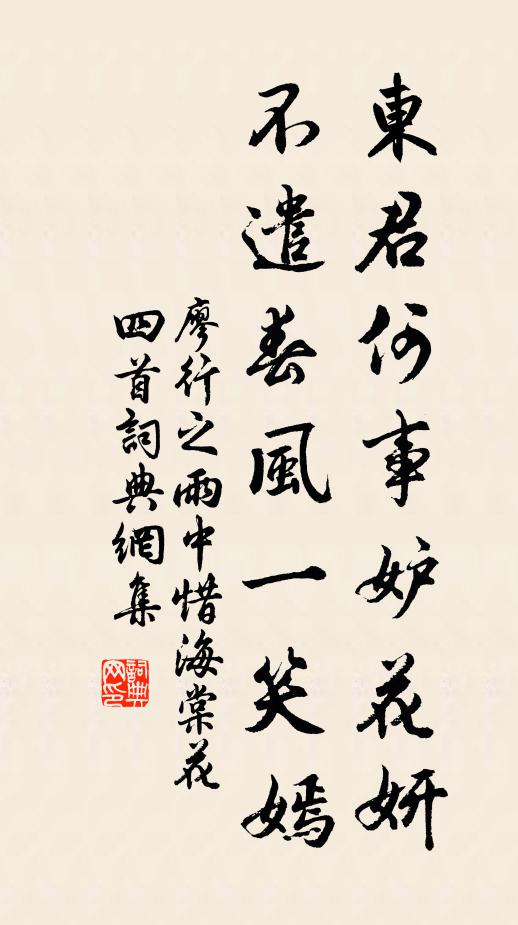 東君何事妒花妍
不遣春風一笑嫣
廖行之雨中惜海棠花
四首詞典網集
詞典网印